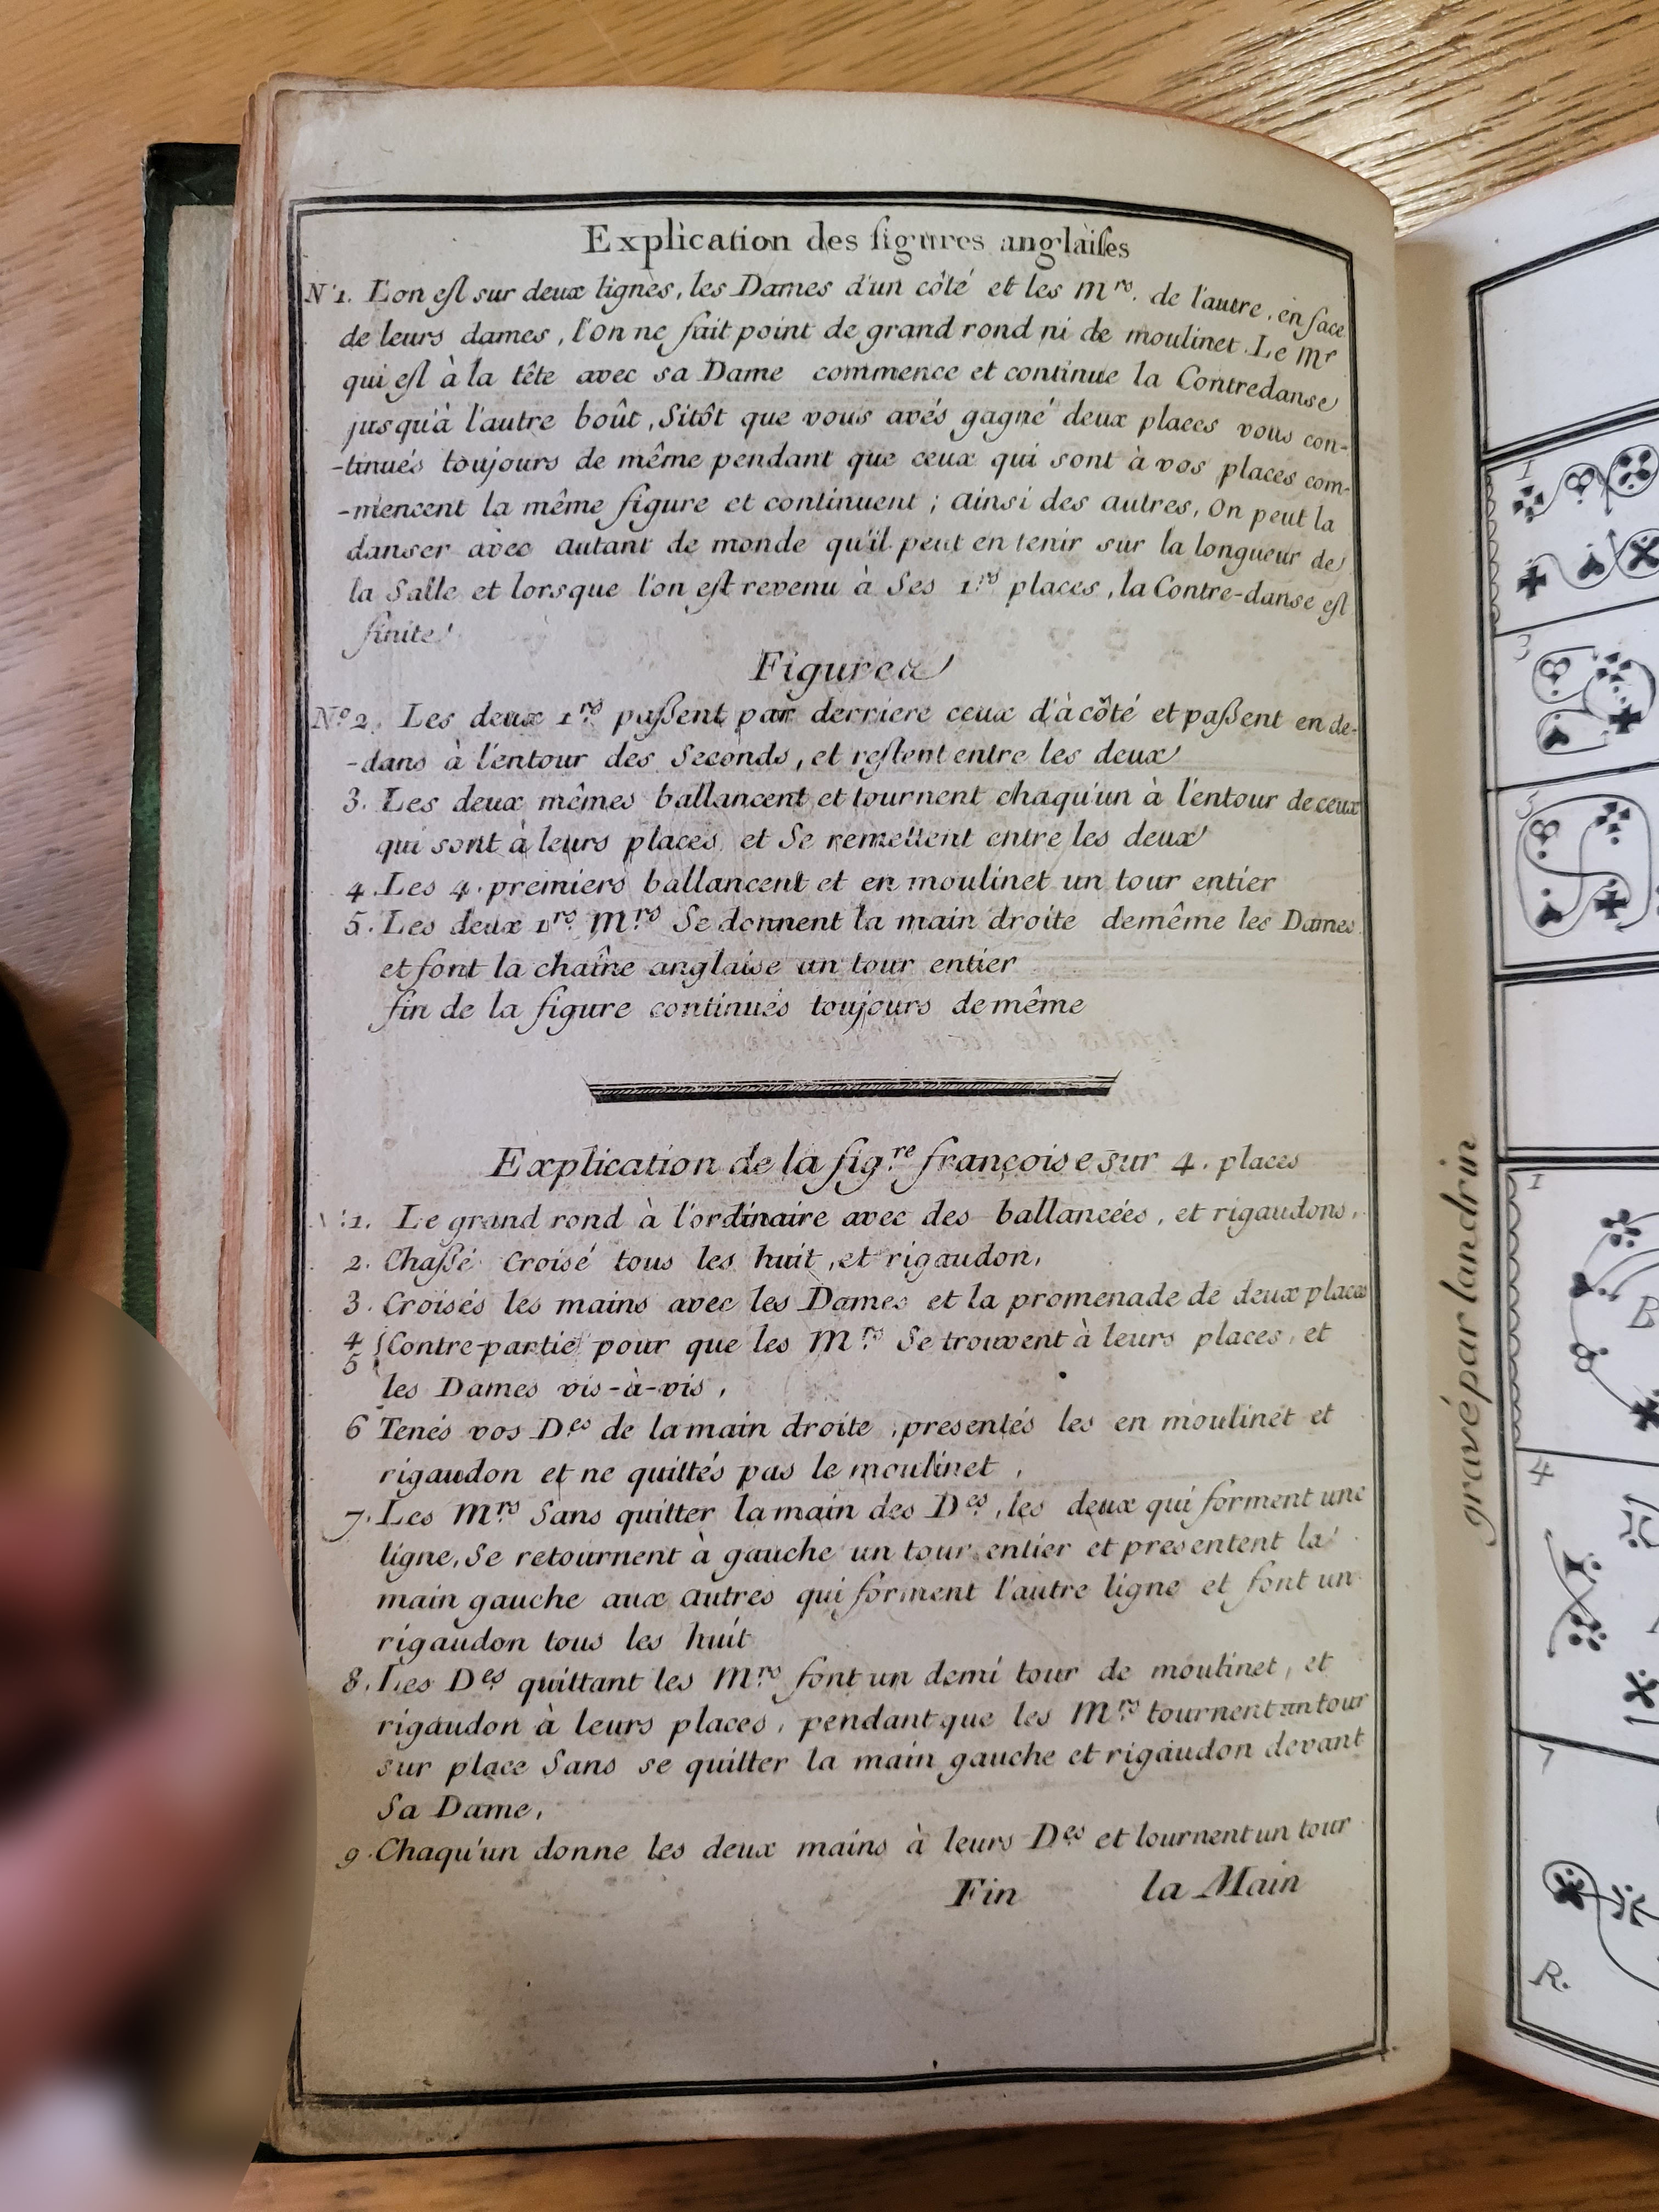 Explication des figures anglaises
N°1. L'on est sur deux lignes, les Dames d'un côté et les Mrs. de l'autre, en face
de leurs dames, l'on ne fait point de grand rond ni de moulinet. Le Mr
qui est à la tête avec sa Dame commence et continue la Contredanse
jusqu'à l'autre boût, Sitôt que vous avés gagné deux places vous con-
-tinués toujours de même pendant que ceux qui sont à vos places com-
-mencent la même figure et continuent ; ainsi des autres, On peut la
danser avec autant de monde qu'il peut en tenir sur la longueur de
la Salle et lorsque l'on est revenu à Ses 1res places, la Contre-danse est
finite
Figures
N°2. Les deux 1rs passent par derriere ceux d'à côté et passent en de-
-dans à l'entour des Seconds, et restent entre les deux
3. Les deux mêmes ballancent et tournent chaqu'un à l'entour de ceux
qui sont à leurs places et Se remettent entre les deux
4. Les 4. premiers ballancent et en moulinet un tour entier
5. Les deux 1rs Mrs Se donnent la main droite de même les Dames
et font la chaîne anglaise un tour entier
fin de la figure continués toujours de même
Explication de la figre françoise sur 4. places
N°1. Le grand rond à l'ordinaire avec des ballancées, et rigaudons,
2. Chassé Croisé tous les huit, et rigaudon,
3. Croisés les mains avec les Dames et la promenade de deux places
4 Contre-partie pour que les Mrs Se trouvent à leurs places, et
5
les Dames vis-à-vis,
6 Tenés vos Des de la main droite, presentés les en moulinet et
rigaudon et ne quittés pas le moulinet,
7. Les Mrs Sans quitter la main des Des, les deux qui forment une
ligne, Se retournent à gauche un tour entier et presentent la
main gauche aux autres qui forment l'autre ligne et font un
rigaudon tous les huit
8. Les Des quittant les Mrs font un demi tour de moulinet, et
rigaudon à leurs places, pendant que les Mrs tournent un tour
sur place Sans se quitter la main gauche et rigaudon devant
Sa Dame,
9. Chaqu'un donne les deux mains à leurs Des et tournent un tour
Fin la Main
gravé par landrin
1
3
5
1
B
4
7
R.